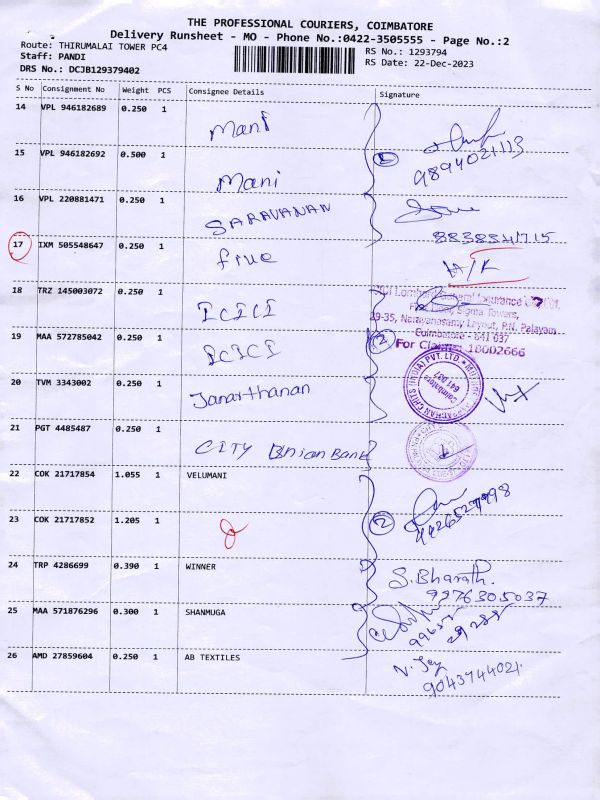 THE PROFESSIONAL COURIERS, COIMBATORE
Delivery Runsheet - MO - Phone No.:0422-3505555 - Page No.:2
Route: THIRUMALAI TOWER PC4
RS No.: 1293794
Staff: PANDI
RS Date: 22-Dec-2023
DRS No.: DCJB129379402
S No Consignment No Weight PCS Consignee Details Signature
14 VPL 946182689 0.250 1 Mani
15 VPL 946182692 0.500 1 Mani
2 9894021113
16 VPL 220881471 0.250 1 SARAVANAN
17 IXM 505548647 0.250 1 five
18 TRZ 145003072 0.250 1 ICICI
ICICI Lombard General Insurance
Sigma Towers,
29-35, Narayanasamy Layout, P.N. Palayam
Coimbatore - 641 037
19 MAA 572785042 0.250 1 ICICI
2 For Claims: 18002666
20 TVM 3343002 0.250 1 Janarthanan
(INDIA) PVT. LTD.
Coimbatore
641 037
21 PGT 4485487 0.250 1 CITY Union Bank
22 COK 21717854 1.055 1 VELUMANI
23 COK 21717852 1.205 1
2
24 TRP 4286699 0.390 1 WINNER
S. Bharath.
9976305037
25 MAA 571876296 0.300 1 SHANMUGA
26 AMD 27859604 0.250 1 AB TEXTILES
N. Jey
9043744021.